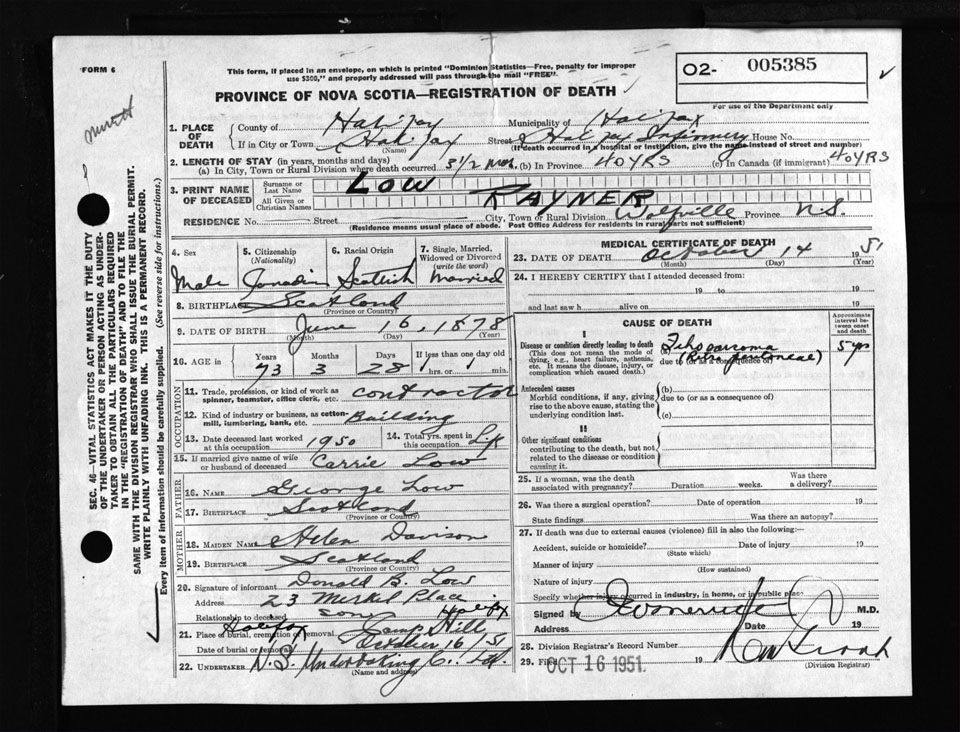 FORM 6
This form, if placed in an envelope, on which is printed "Dominion Statistics—Free, penalty for improper
use $300," and properly addressed will pass through the mail "FREE".
PROVINCE OF NOVA SCOTIA—REGISTRATION OF DEATH
O2- 005385
For use of the Department only
1. PLACE OF DEATH
County of Halifax Municipality of Halifax
If in City or Town Halifax (Name) Street Halifax Infirmary House No.
(If death occurred in a hospital or institution, give the name instead of street and number)
2. LENGTH OF STAY (in years, months and days)
(a) In City, Town or Rural Division where death occurred 3 1/2 mos. (b) In Province 40 YRS (c) In Canada (if immigrant) 40 YRS
3. PRINT NAME OF DECEASED
Surname or Last Name LOW
All Given or Christian Names RAYNER
RESIDENCE No. Street City, Town or Rural Division Wolfville Province N.S.
(Residence means usual place of abode. Post Office Address for residents in rural parts not sufficient)
4. Sex Male
5. Citizenship (Nationality) Canadian
6. Racial Origin Scottish
7. Single, Married, Widowed or Divorced (write the word) Married
8. BIRTHPLACE Scotland
(Province or Country)
9. DATE OF BIRTH June 16, 1878
(Month) (Day) (Year)
10. AGE in Years 73 Months 3 Days 28 If less than one day old hrs. or min.
OCCUPATION
11. Trade, profession, or kind of work as spinner, teamster, office clerk, etc. contractor
12. Kind of industry or business, as cotton-mill, lumbering, bank, etc. Building
13. Date deceased last worked at this occupation 1950
14. Total yrs. spent in this occupation Life
15. If married give name of wife or husband of deceased Carrie Low
FATHER
16. NAME George Low
17. BIRTHPLACE Scotland
(Province or Country)
MOTHER
18. MAIDEN NAME Helen Davison
19. BIRTHPLACE Scotland
(Province or Country)
20. Signature of informant Donald B. Low
Address 23 Merkel Place
Relationship to deceased son Halifax
21. Place of burial, cremation or removal Halifax Camp Hill
Date of burial or removal October 16/51
22. UNDERTAKER N.S. Undertaking Co. Ltd.
(Name and address)
MEDICAL CERTIFICATE OF DEATH
23. DATE OF DEATH October 14 1951
(Month) (Day) (Year)
24. I HEREBY CERTIFY that I attended deceased from:
19 to 19
and last saw h alive on 19
CAUSE OF DEATH
Approximate interval between onset and death
I
Disease or condition directly leading to death
(This does not mean the mode of dying, e.g., heart failure, asthenia, etc. It means the disease, injury, or complication which caused death.)
(Retro peritoneal) 5 yrs
due to (or as a consequence of)
Antecedent causes
Morbid conditions, if any, giving rise to the above cause, stating the underlying condition last.
(b)
due to (or as a consequence of)
(c)
II
Other significant conditions
contributing to the death, but not related to the disease or condition causing it.
25. If a woman, was the death associated with pregnancy? Duration weeks. Was there a delivery?
26. Was there a surgical operation? Date of operation 19
State findings Was there an autopsy?
27. If death was due to external causes (violence) fill in also the following:—
Accident, suicide or homicide? Date of injury 19
(State which)
Manner of injury
(How sustained)
Nature of injury
Specify whether injury occurred in industry, in home, or in public place
Signed by M.D.
Address Date 19
28. Division Registrar's Record Number
29. Filed OCT 16 1951. 19
(Division Registrar)
SEC. 46—VITAL STATISTICS ACT MAKES IT THE DUTY
OF THE UNDERTAKER OR PERSON ACTING AS UNDER-
TAKER TO OBTAIN ALL THE PARTICULARS REQUIRED
IN THE "REGISTRATION OF DEATH" AND TO FILE THE
SAME WITH THE DIVISION REGISTRAR WHO SHALL ISSUE THE BURIAL PERMIT.
WRITE PLAINLY WITH UNFADING INK. THIS IS A PERMANENT RECORD.
Every item of information should be carefully supplied. (See reverse side for instructions.)